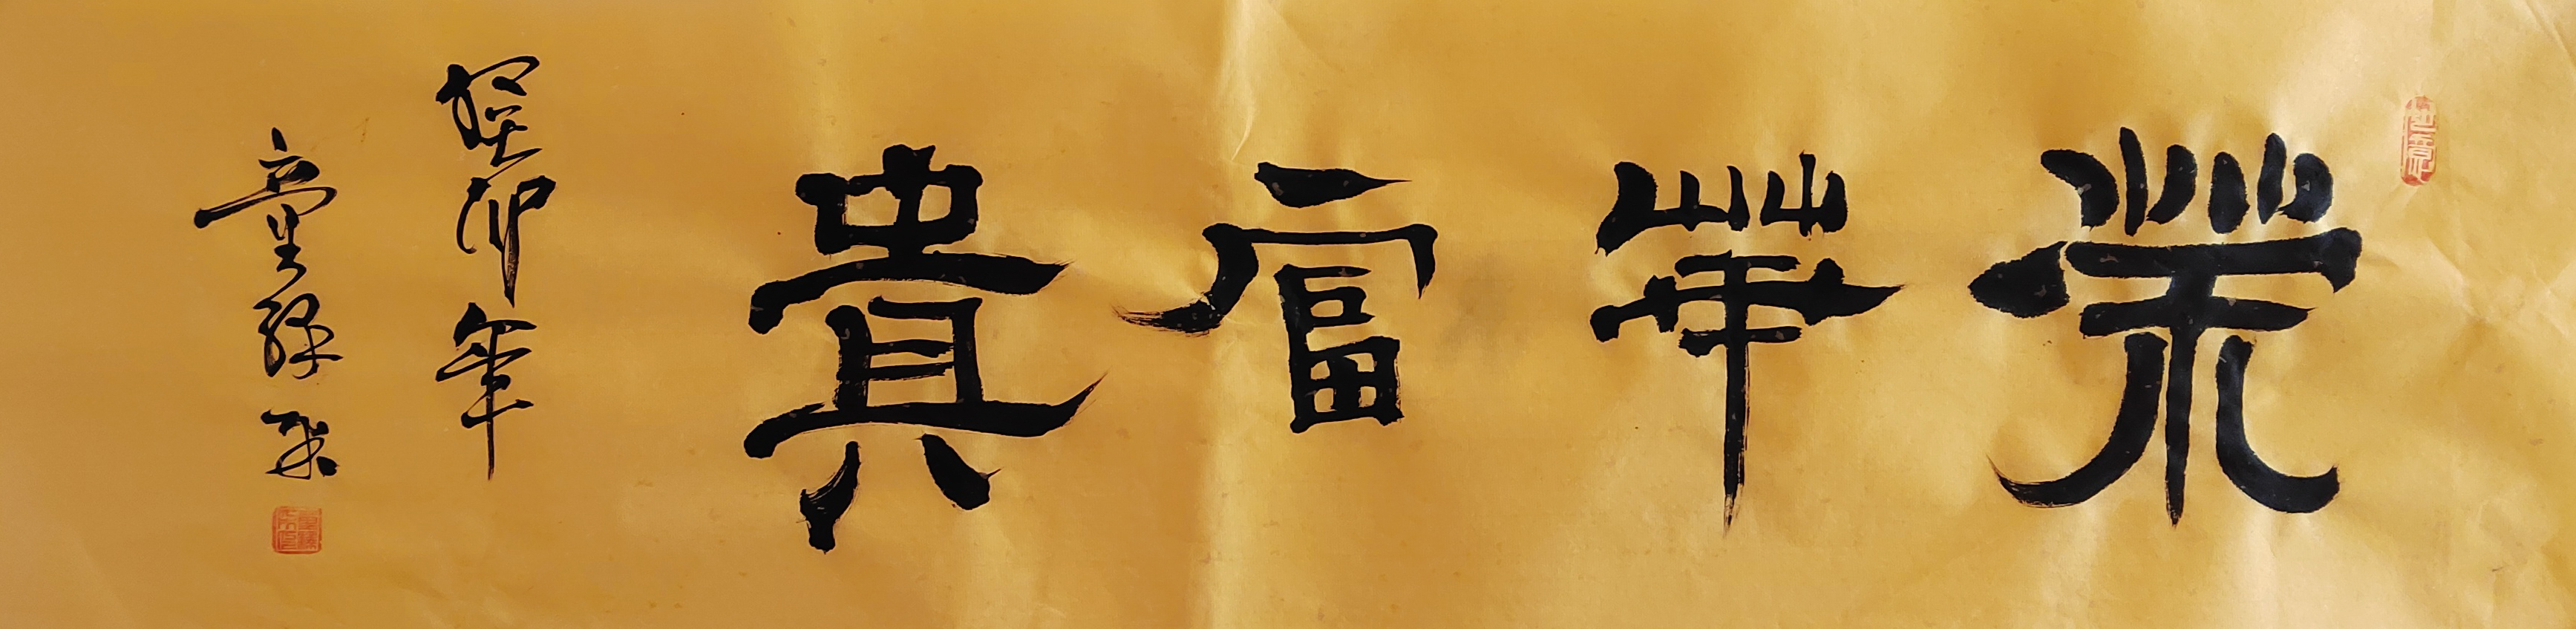 榮華富貴
癸卯年
童緑泉